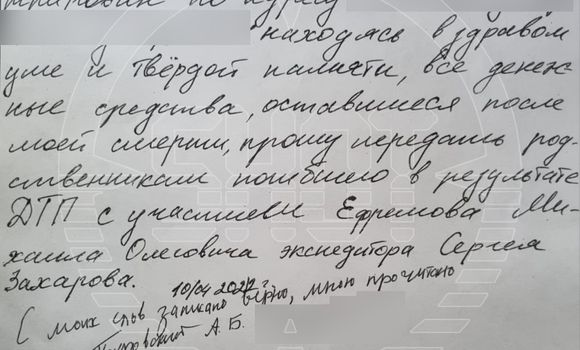 находясь в здравом
уме и твёрдой памяти, все денеж-
ные средства, оставшиеся после
моей смерти, прошу передать род-
ственникам погибшего в результате
ДТП с участием Ефремова Ми-
хаила Олеговича экспедитора Сергея
Захарова.
10/04 2022 г.
С моих слов записано верно, мною прочитано
А. Б.